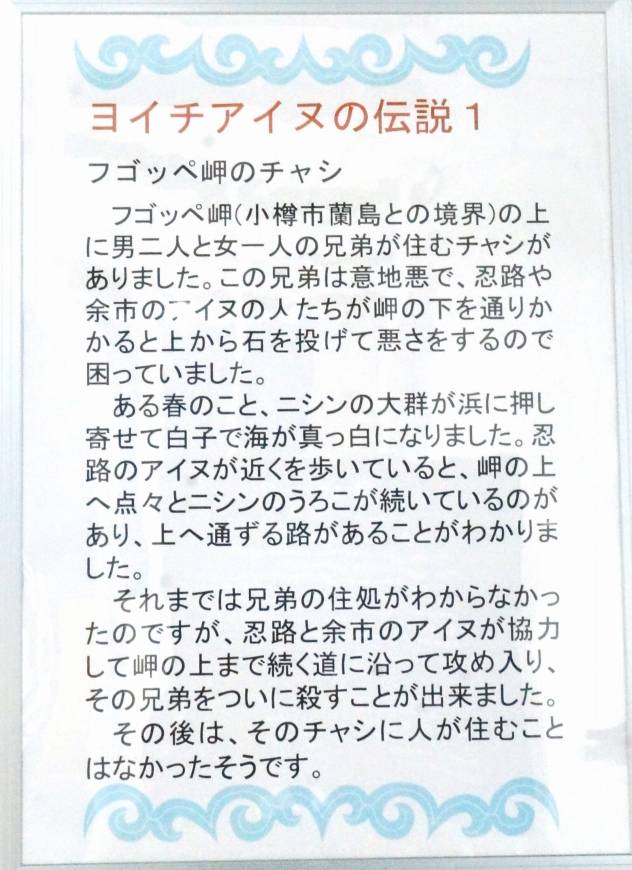 ヨイチアイヌの伝説１
フゴッペ岬のチャシ
　フゴッペ岬(小樽市蘭島との境界)の上
に男二人と女一人の兄弟が住むチャシが
ありました。この兄弟は意地悪で、忍路や
余市のアイヌの人たちが岬の下を通りか
かると上から石を投げて悪さをするので
困っていました。
　ある春のこと、ニシンの大群が浜に押し
寄せて白子で海が真っ白になりました。忍
路のアイヌが近くを歩いていると、岬の上
へ点々とニシンのうろこが続いているのが
あり、上へ通ずる路があることがわかりま
した。
　それまでは兄弟の住処がわからなかっ
たのですが、忍路と余市のアイヌが協力
して岬の上まで続く道に沿って攻め入り、
その兄弟をついに殺すことが出来ました。
　その後は、そのチャシに人が住むこと
はなかったそうです。